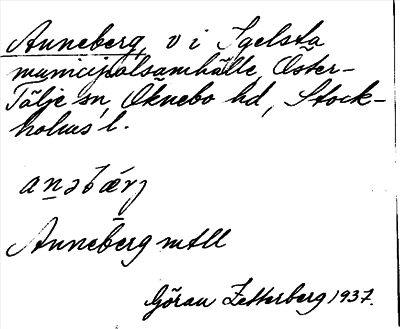 Anneberg, v i Igelsta
municipalsamhälle, Öster-
Tälje sn, Öknebo hd, Stock-
holms l.
anəbærj
Anneberg mtll
Göran Zetterberg 1937.